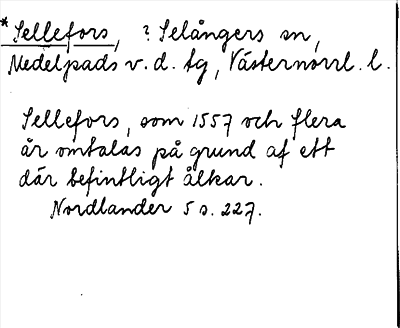 *Sellefors, ? Selångers sn,
Medelpads v. d. tg, Västernorrl. l.
Sellefors, som 1557 och flera
år omtalas på grund af ett
där befintligt ålkar.
Nordlander 5 s. 227.